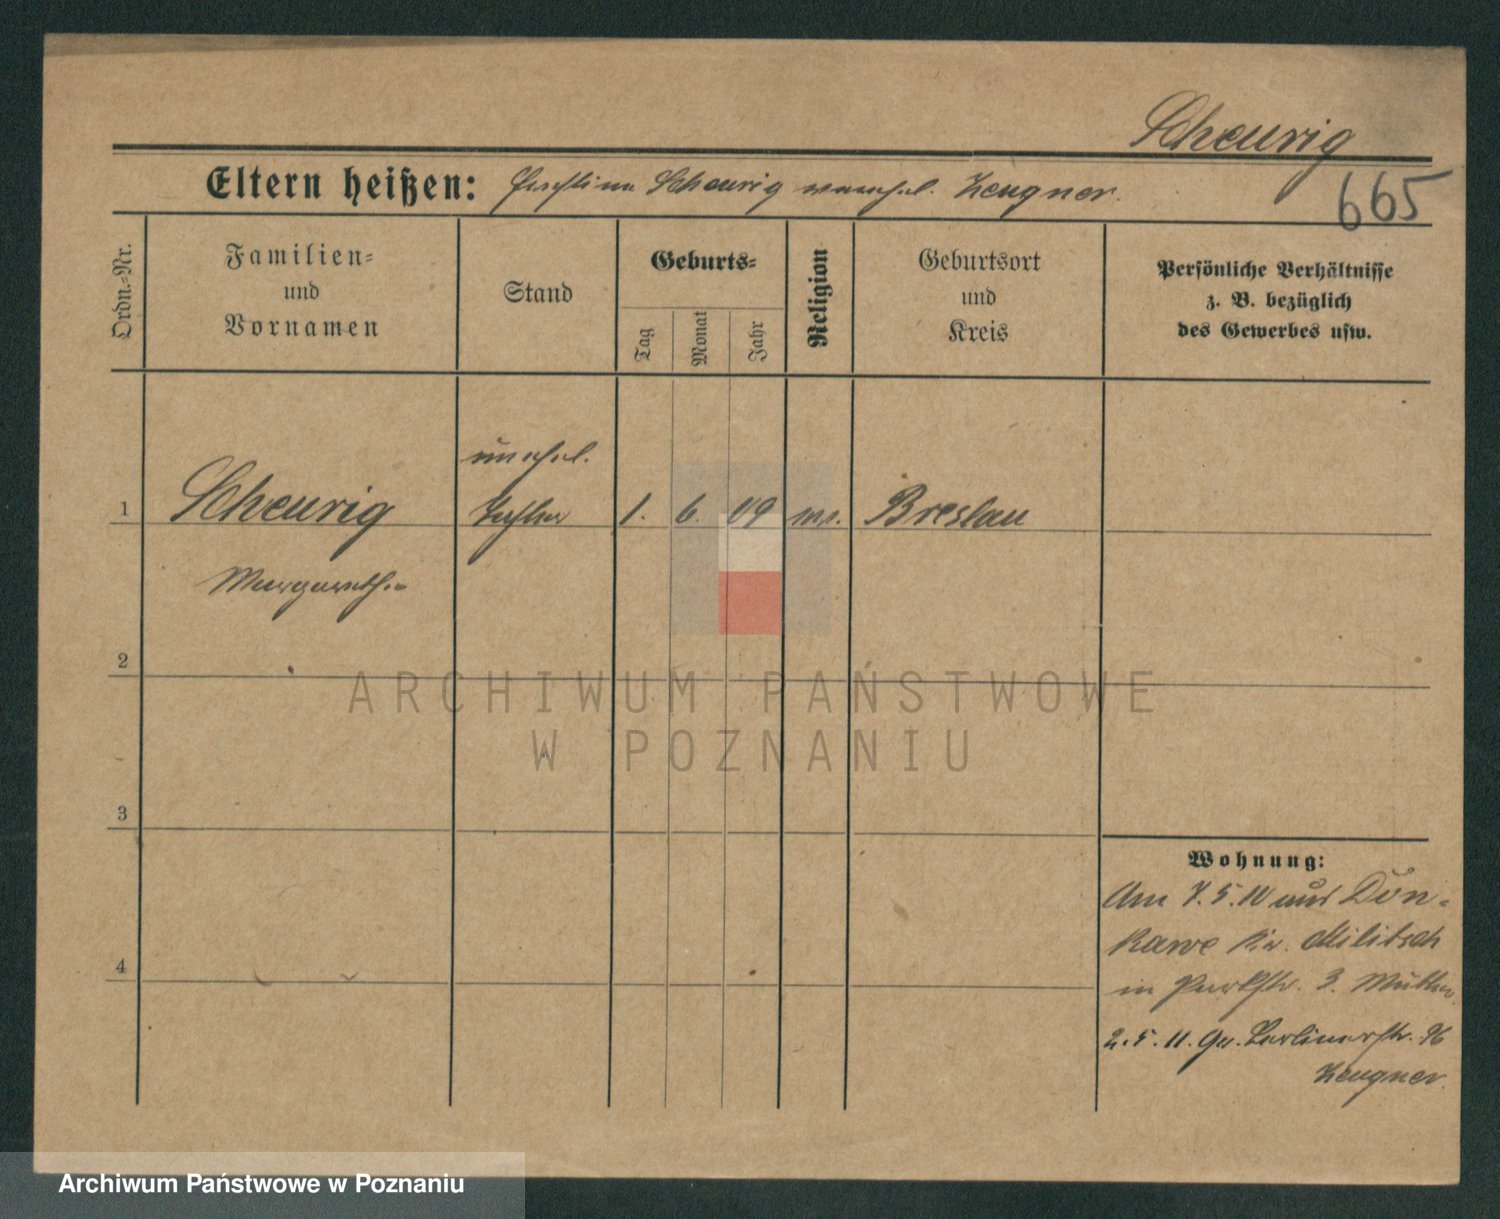 Scheurig
665
Eltern heißen: Scheurig Zeugner.
Ordn.-Nr.
Familien-
und
Vornamen
Stand
Geburts-
Tag
Monat
Jahr
Religion
Geburtsort
und
Kreis
Persönliche Verhältnisse
z. B. bezüglich
des Gewerbes usw.
unehel.
1 Scheurig Tochter 1. 6. 09 Breslau
Margarethe
2
ARCHIWUM PAŃSTWOWE
W POZNANIU
3
Wohnung:
Am 7.5.10 aus Don-
kawe Kr. Militsch
4
in Parkstr. 3. Mutter
2.5.11. Gr. Berlinerstr. 96
Zeugner.
Archiwum Państwowe w Poznaniu